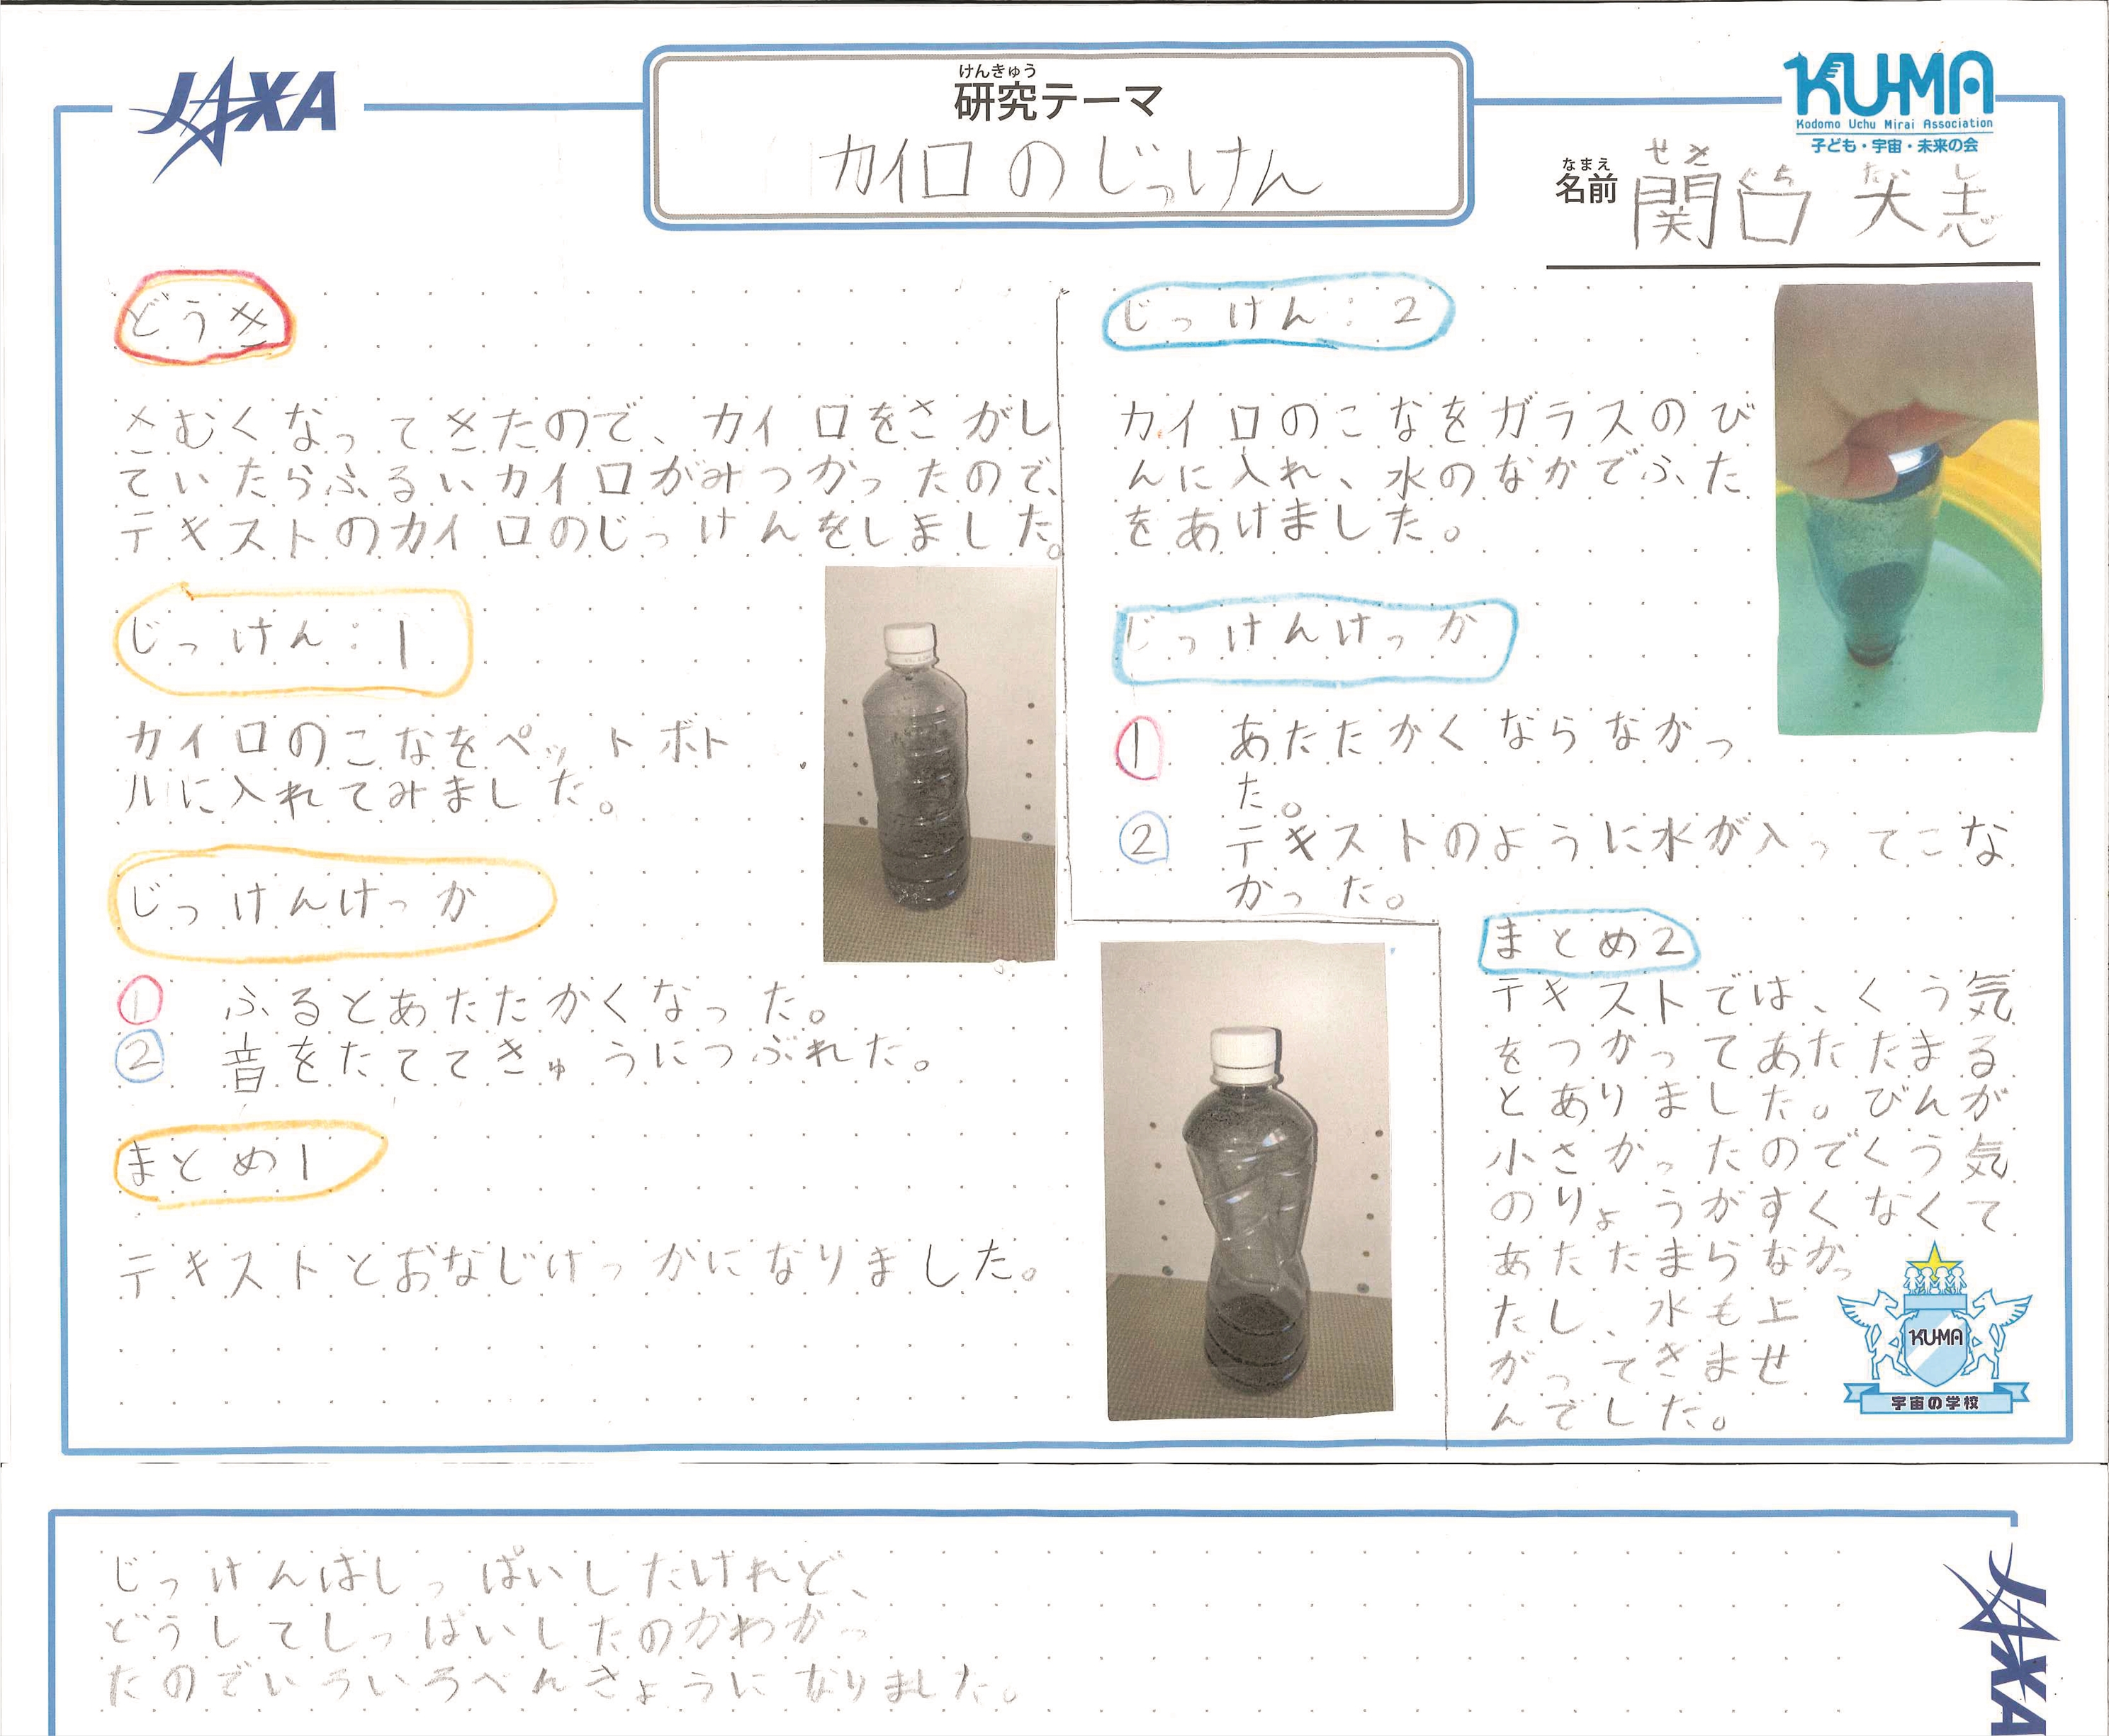 JAXA
けんきゅう
研究テーマ
カイロのじっけん
KU-MA
Kodomo Uchu Mirai Association
子ども・宇宙・未来の会
なまえ
名前
せきぐち たいし
関口 大志
どうき
さむくなってきたので、カイロをさがし
ていたらふるいカイロがみつかったので、
テキストのカイロのじっけんをしました。
じっけん:1
カイロのこなをペットボト
ルに入れてみました。
じっけんけっか
① ふるとあたたかくなった。
② 音をたててきゅうにつぶれた。
まとめ1
テキストとおなじけっかになりました。
じっけん:2
カイロのこなをガラスのび
んに入れ、水のなかでふた
をあけました。
じっけんけっか
① あたたかくならなかっ
た。
② テキストのように水が入ってこな
かった。
まとめ2
テキストでは、くう気
をつかってあたたまる
とありました。びんが
小さかったのでくう気
のりょうがすくなくて
あたたまらなかっ
たし、水も上
がってきませ
んでした。
KU-MA
宇宙の学校
じっけんはしっぱいしたけれど、
どうしてしっぱいしたのかわかっ
たのでいろいろべんきょうになりました。
JAXA